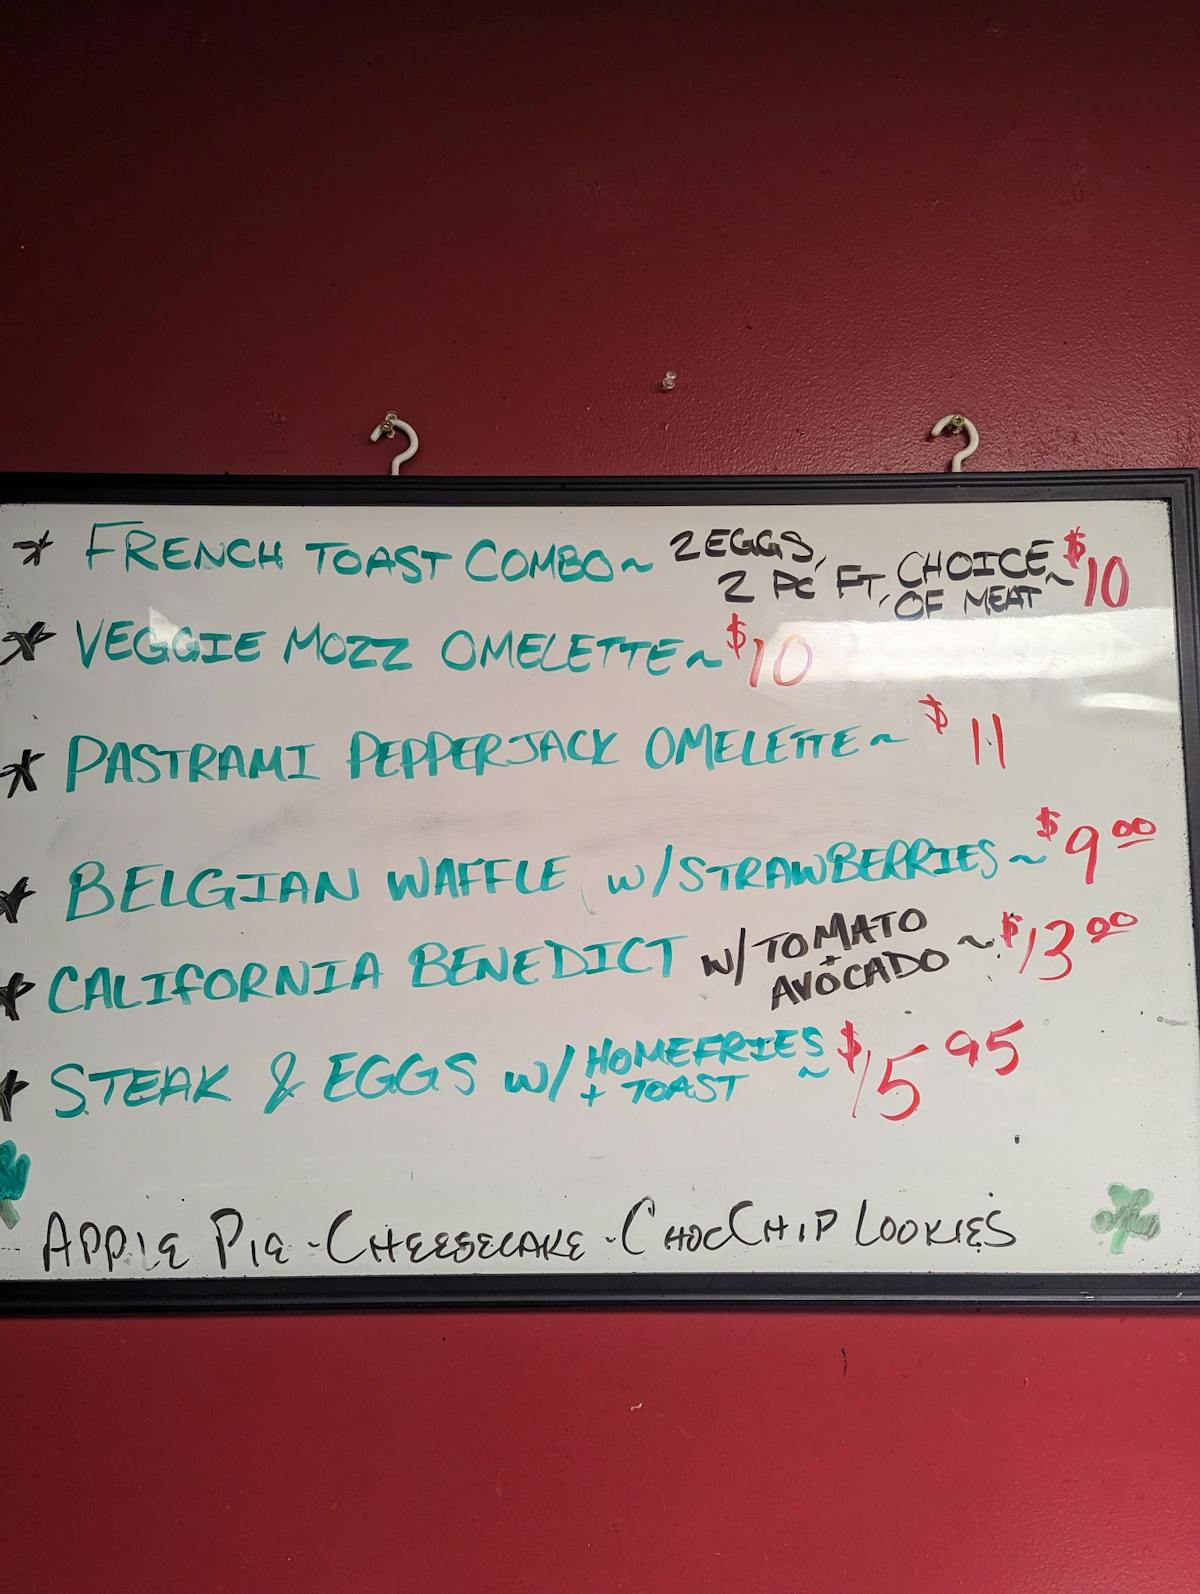 * FRENCH TOAST COMBO ~ 2 EGGS, 2 PC FT, CHOICE OF MEAT ~ $10
* VEGGIE MOZZ OMELETTE ~ $10
* PASTRAMI PEPPERJACK OMELETTE ~ $11
* BELGIAN WAFFLE w/STRAWBERRIES ~ $9.00
* CALIFORNIA BENEDICT w/TOMATO + AVOCADO ~ $13.00
* STEAK & EGGS w/HOMEFRIES + TOAST ~ $15.95
APPLE PIE - CHEESECAKE - CHOCCHIP COOKIES